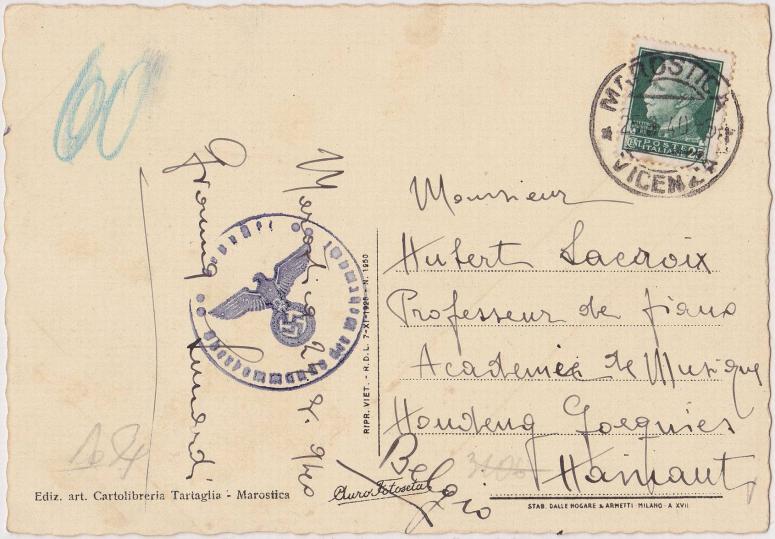 60
MAROSTICA
VICENZA
POSTE
ITALIANE
Monsieur
Hubert Lacroix
Professeur de piano
Academie de Musique
Houdeng Goegnies
Hainaut
Belgio
Marostica
RIPR. VIET. - R. D. L. 7-XI-1925 - N. 1950
Geprüft
Oberkommando der Wehrmacht
Ediz. art. Cartolibreria Tartaglia - Marostica
STAB. DALLE NOGARE & ARMETTI - MILANO - A XVII